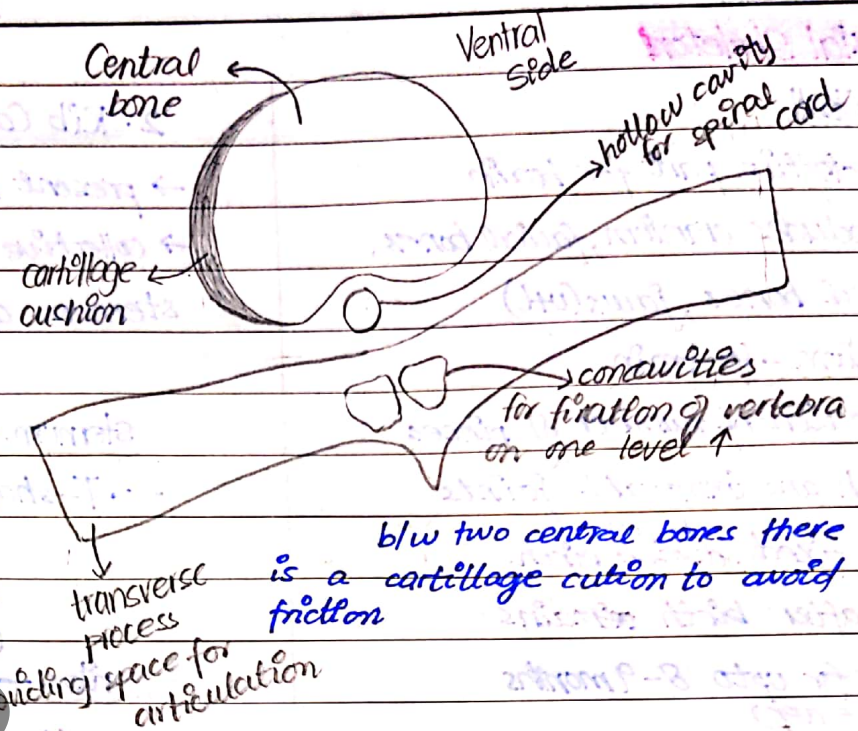 Central
bone
Ventral
Side
hollow cavity
for spiral
cord
cartillage
cushion
concavities
for fixation of vertebra
on one level ↑
b/w two central bones there
is a cartillage cution to avoid
friction
transverse
process
space for
articulation